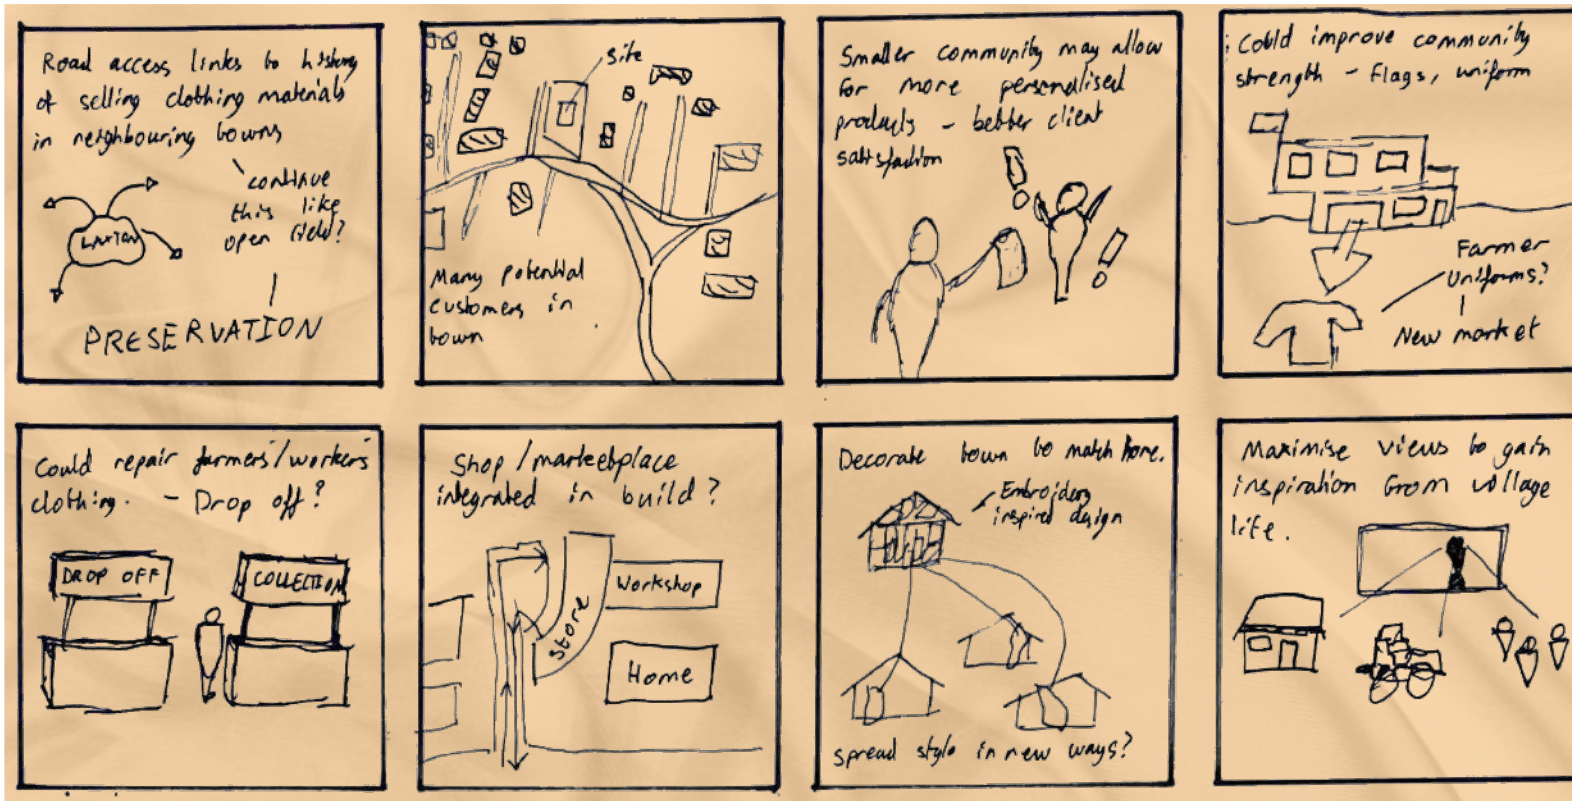 Road access links to history
of selling clothing materials
in neighbouring towns
continue
this like
open field?
LAXTON
PRESERVATION
Site
Many potential
customers in
town
Smaller community may allow
for more personalised
products - better client
satisfaction
Could improve community
strength - Flags, uniform
Farmer
Uniforms?
New market
Could repair farmers/workers
clothing. - Drop off?
DROP OFF
COLLECTION
Shop/marketplace
integrated in build?
Store
Workshop
Home
Decorate town to match home.
Embroidery
inspired design
Spread style in new ways?
Maximise views to gain
inspiration from village
life.